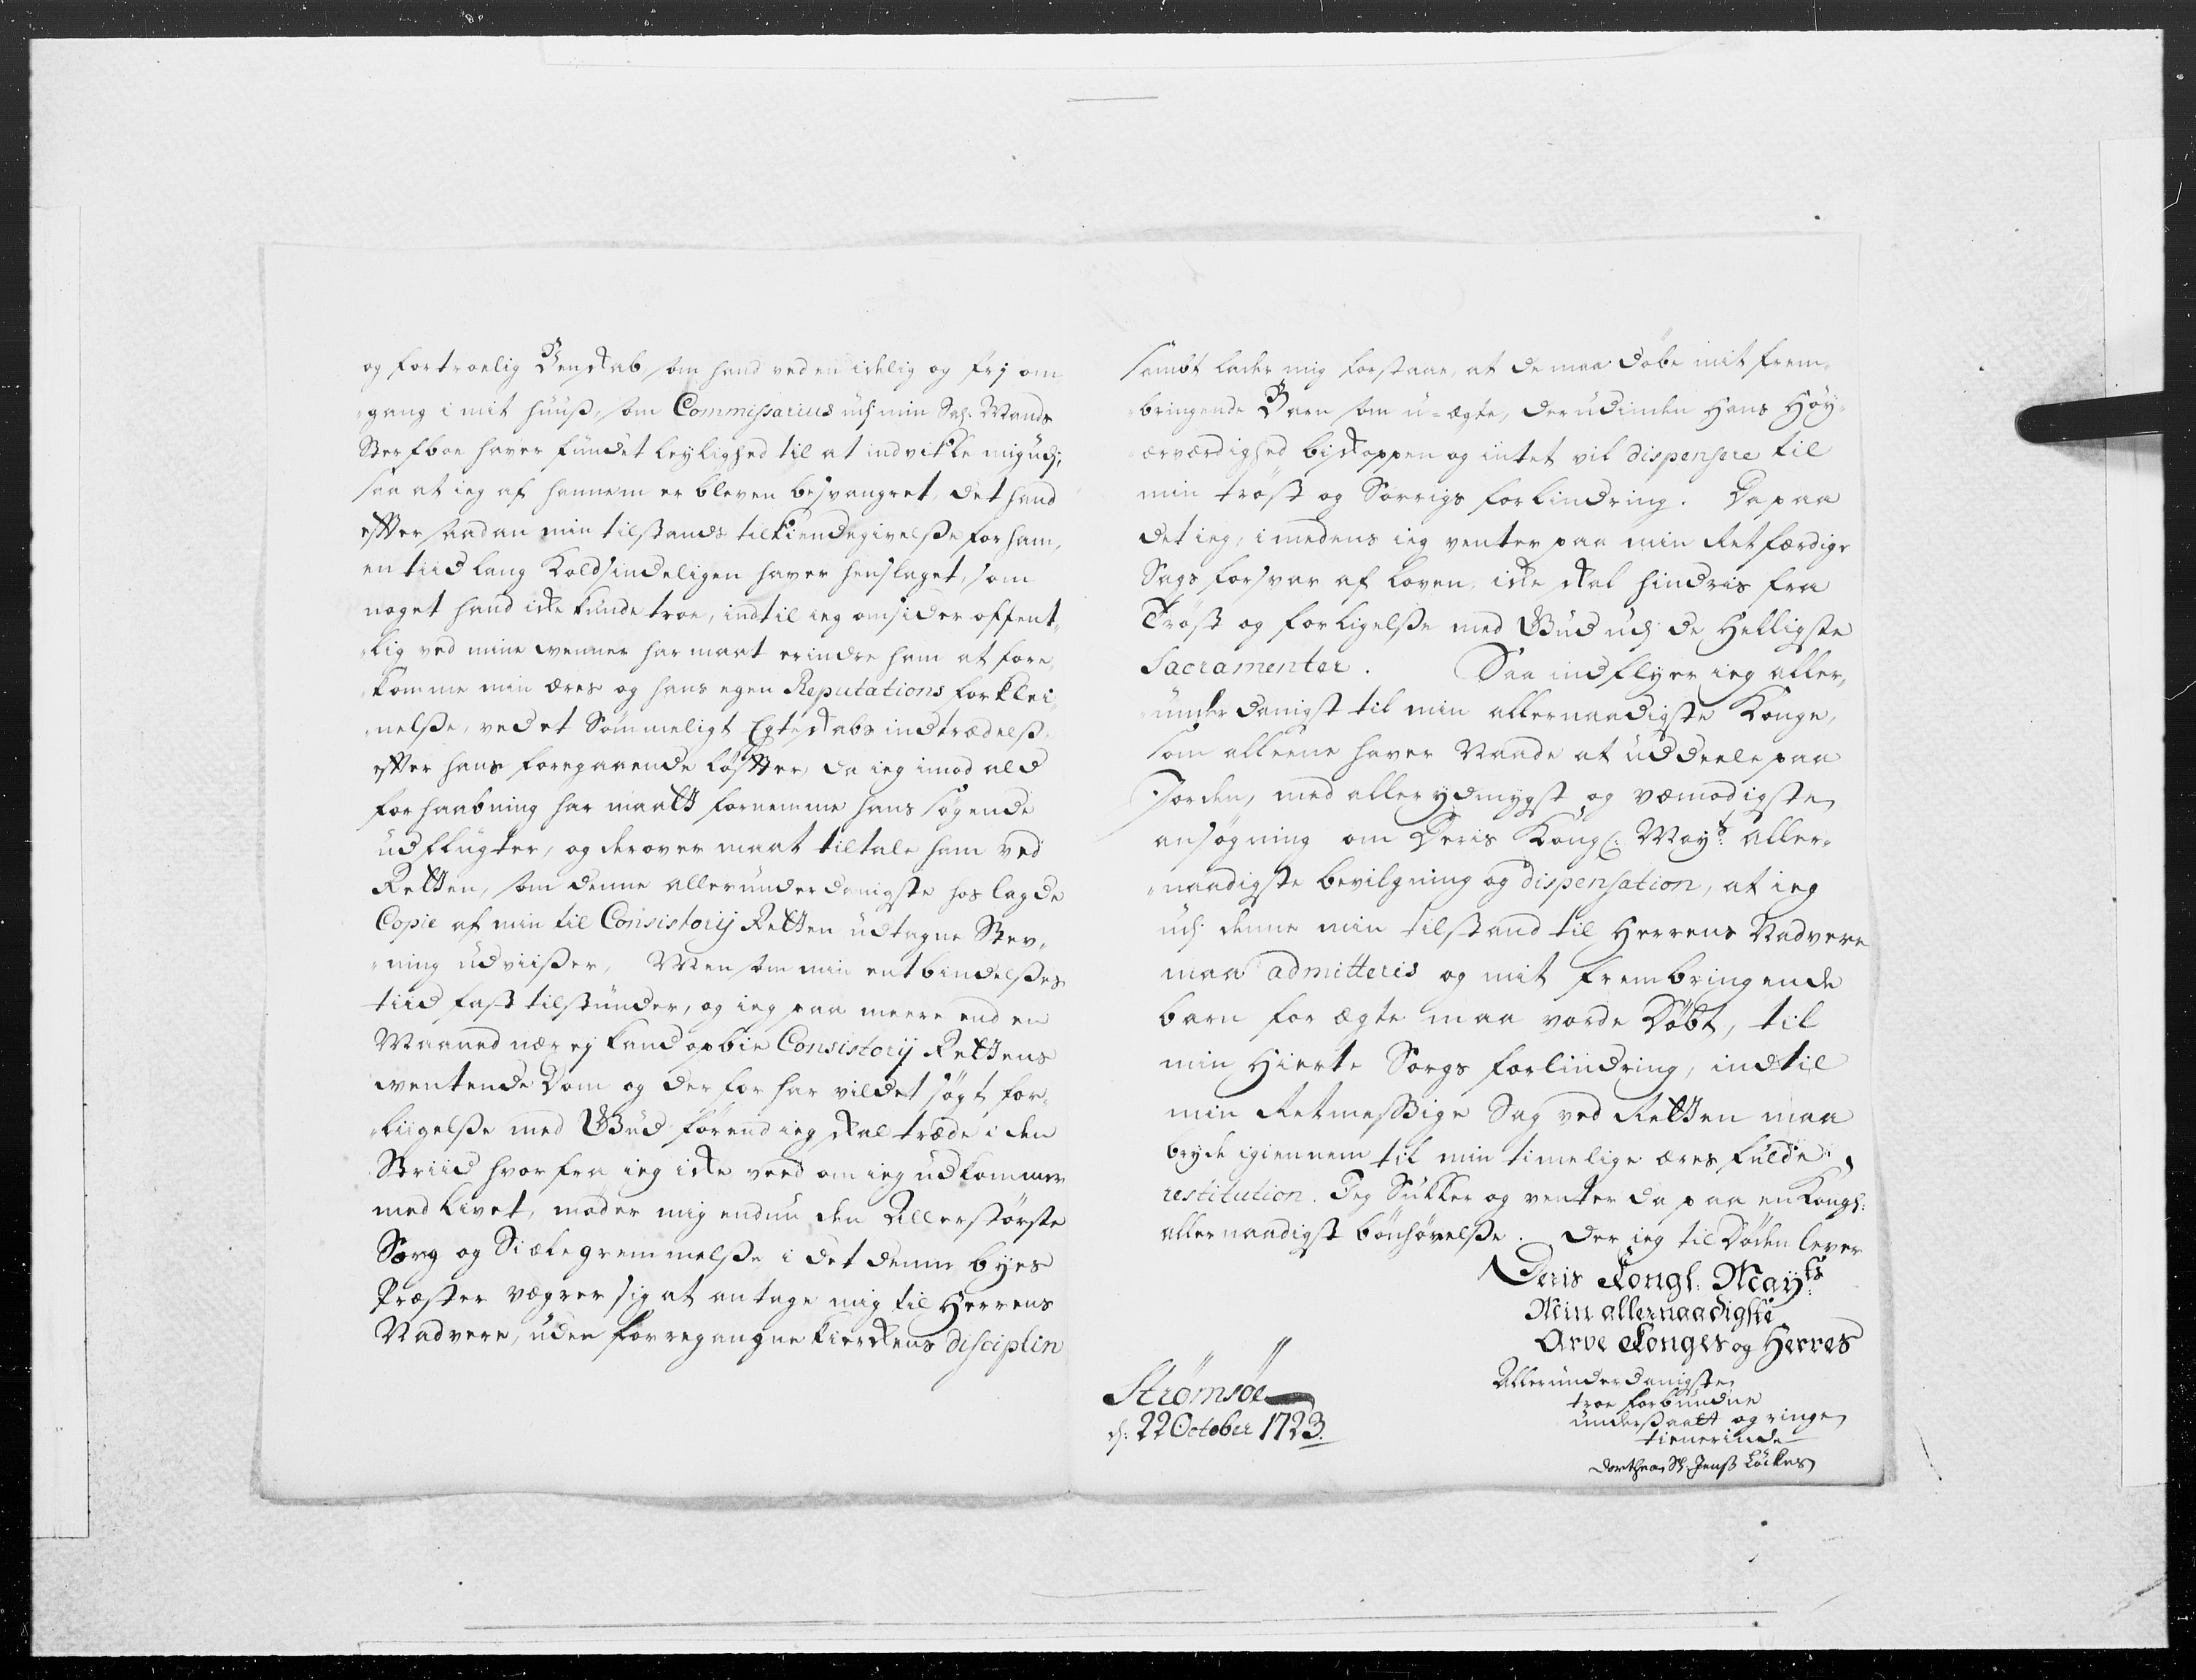 og fortroelig Venskab, som hand ved en idelig og frj om-
gang i mit huuss, som Commissarius udj min Sal: Mands
Sterfboe haver fundet leylighed til at indvikle mig udj;
saa at ieg af hannem er bleven besvangret, det hand
effter saadan min tilstands tilkiendegivelsse for ham,
en tiid lang Koldsindeligen haver henslaget, som
noget hand icke kunde troe, indtil ieg omsider offent-
lig ved mine wenner har maat erindre ham at fore-
komme min æres og hans egen Reputations forklei-
nelsse, ved et Sømmeligt Egteskabs indtrædelsse
effter hans foregaaende løffter, da ieg imod ald
forhaabning har maatt fornemme hans søgende
udflugter, og derover maat tiltale ham ved
Retten, som denne allerunderdanigste hoslagde
Copie af min til Consistorij Retten udtagne Stev-
ning udviisser, Men som min entbindelsses
tiid fast tilstunder, og ieg paa meere end en
Maaned nær ej kand opbie Consistorij Rettens
wentende Dom og derfor har vildet søgt for-
ligelsse med Gud førend ieg skal træde i den
Striid hvorfra ieg icke veed om ieg udkommer
med livet, møder mig endnu den Allerstørste
Sorg og Siælegremmelsse i det denne byes
Præster vægrer sig at antage mig til Herrens
Nadvere, uden forregangne kierckens disciplin
sambt lader mig forstaae, at de maa døbe mit frem-
bringende Barn som u-ægte, derudinden Hans Høy-
ærværdighed biskoppen og intet vil dispensere til
min trøst og Sorrigs forlindring. Da paa
det ieg, imedens ieg venter paa min Retfærdige
Sags forsvar af loven, icke skal hindris fra
Trøst og forligelsse med Gud udj de Helligste
Sacramenter. Saa indflyer ieg aller-
underdanigst til min allernaadigste Konge,
som alleene haver Naade at uddeele paa
Jorden, med allerydmygst og væmodigste
ansøgning om Deris Kongl: Mayts: aller-
naadigste bevilgning og dispensation, at ieg
udj denne min tilstand til Herrens Nadvere
maa admitteris og mit frembringende
barn for ægte maa vorde Døbt, til
min Hierte Sorgs forlindring, indtil
min Retmessige Sag ved Retten maa
bryde igiennem til min timelige æres fulde
restitution. Jeg Sukker og venter da paa en Kongl:
allernaadigst bønhørelsse. Der ieg til Døden lever
Deris Kongl: Mayts:
Min allernaadigste
Arve Konges og Herres
Allerunderdanigste
troe forbundne
undersaatt og ringe
tienerinde
Dorthea Sl: Jenss Løckes
Strømsøe
d: 22 October 1723.